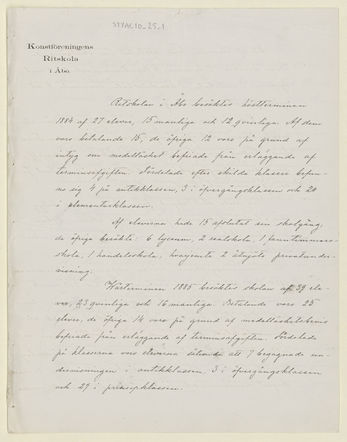 STYAC10_25_1
Konstföreningens
Ritskola
i Åbo.
Ritskolan i Åbo besöktes höstterminen
1884 af 27 elever, 15 manliga och 12 qvinliga. Af dem
voro betalande 15, de öfriga 12 voro på grund af
intyg om medellöshet befriade från erläggande af
terminsafgiften. Fördelade efter skilda klasser befun-
no sig 4 på antikklassen, 3 i öfvergångsklassen och 20
i elementarklassen.
Af eleverna hade 15 afslutat sin skolgång,
de öfriga besökte: 6 lyceum, 2 realskola, 1 fruntimmers-
skola, 1 handelsskola, 2 åtnjöto privatunder-
visning.
Vårterminen 1885 besöktes skolan af 39 ele-
ver, 23 qvinliga och 16 manliga. Betalande voro 25
elever, de öfriga 14 voro på grund af medellöshetsbevis
befriade från erläggande af terminsafgiften. Fördelade
på klasserna voro eleverna sålunda att 7 begagnade un-
dervisningen i antikklassen, 3 i öfvergångsklassen
och 29 i principklassen.